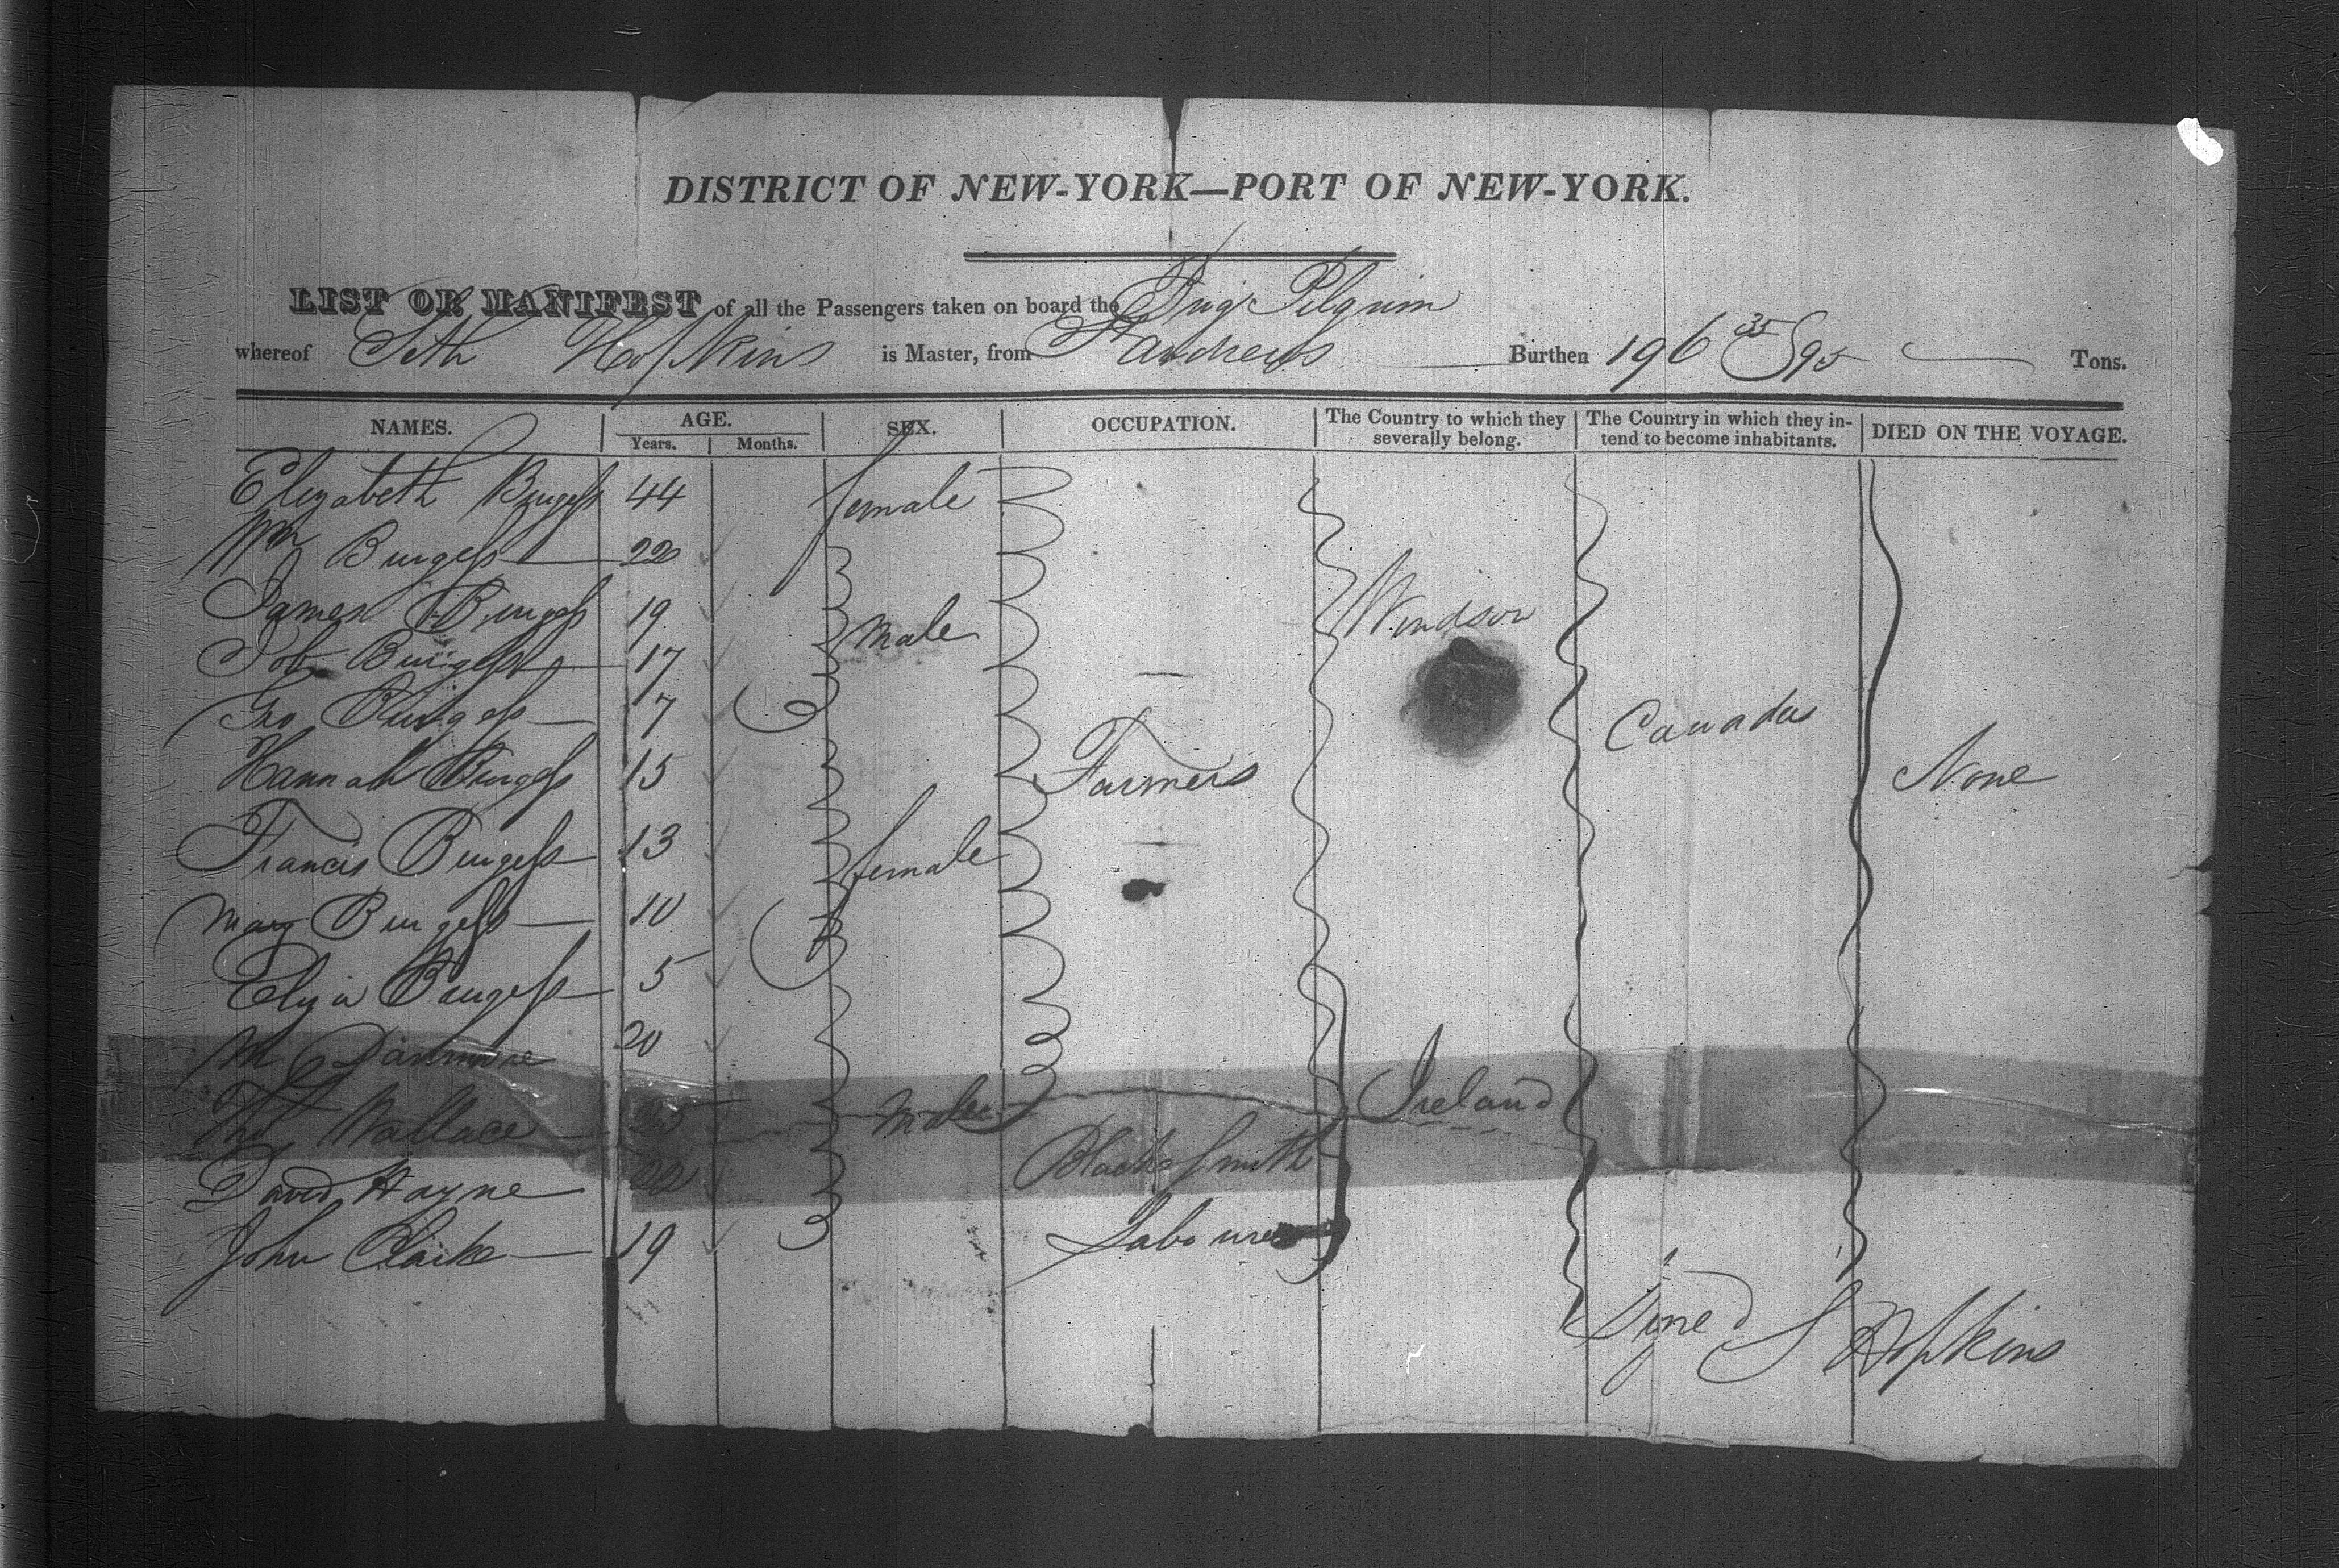 DISTRICT OF NEW-YORK—PORT OF NEW-YORK.
LIST OR MANIFEST of all the Passengers taken on board the Brig Pilgrim
whereof Seth Hopkins is Master, from St Andrews Burthen 196 35/95 Tons.
NAMES. AGE. SEX. OCCUPATION. The Country to which they severally belong. The Country in which they intend to become inhabitants. DIED ON THE VOYAGE.
Years. Months.
Elizabeth Burgess 44 female
Wm Burgess 22
James Burgess 19 male Windsor
Job Burgess 17
Geo Burgess 7 Canada
Hannah Burgess 15 Farmers None
Francis Burgess 13 female
Mary Burgess 10
Eliza Burgess 5
M 20
Thos Wallace Males Ireland
David Hayne 22 Blacksmith
John Clarke 19 Labourer
Signed S Hopkins